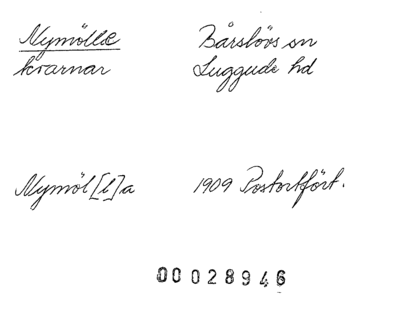 Nymölle Bårslövs sn
kvarnar Luggude hd
Nymöl[l]a 1909 Postortfört.
00028946